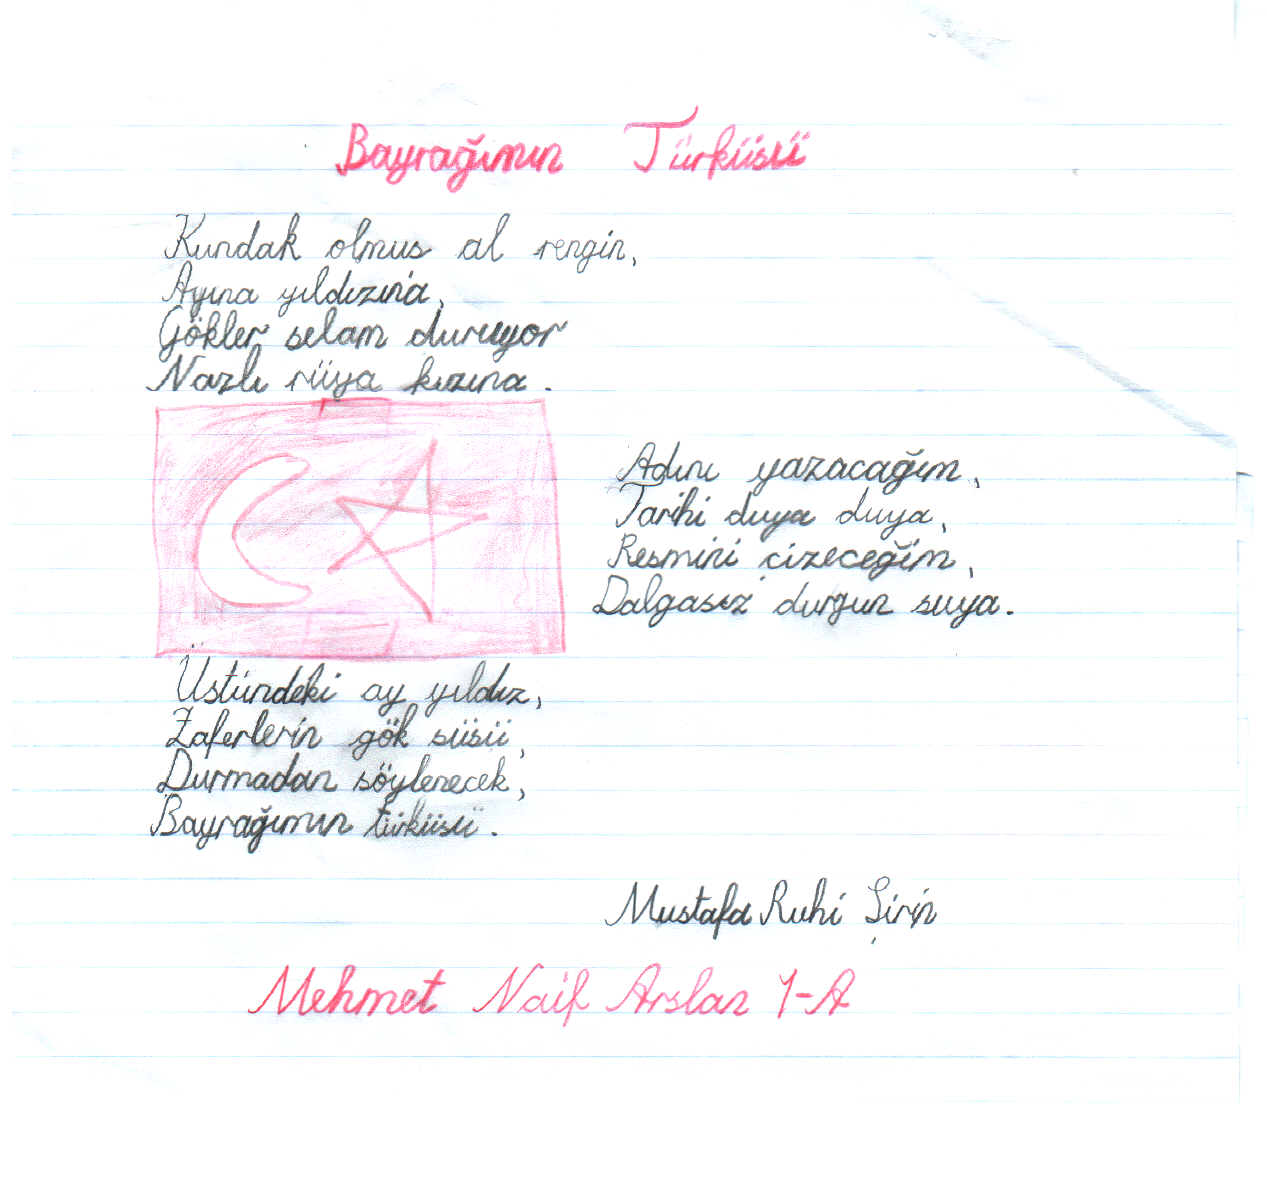 Bayrağımın Türküsü
Kundak olmus al rengin,
Ayına yıldızına,
Gökler selam duruyor
Nazlı rüya kızına.
Adını yazacağım,
Tarihi duya duya,
Resmini çizeceğim,
Dalgasız durgun suya.
Üstündeki ay yıldız,
Zaferlerin gök süsü,
Durmadan söylenecek,
Bayrağımın türküsü.
Mustafa Ruhi Şirin
Mehmet Naif Arslan 1-A